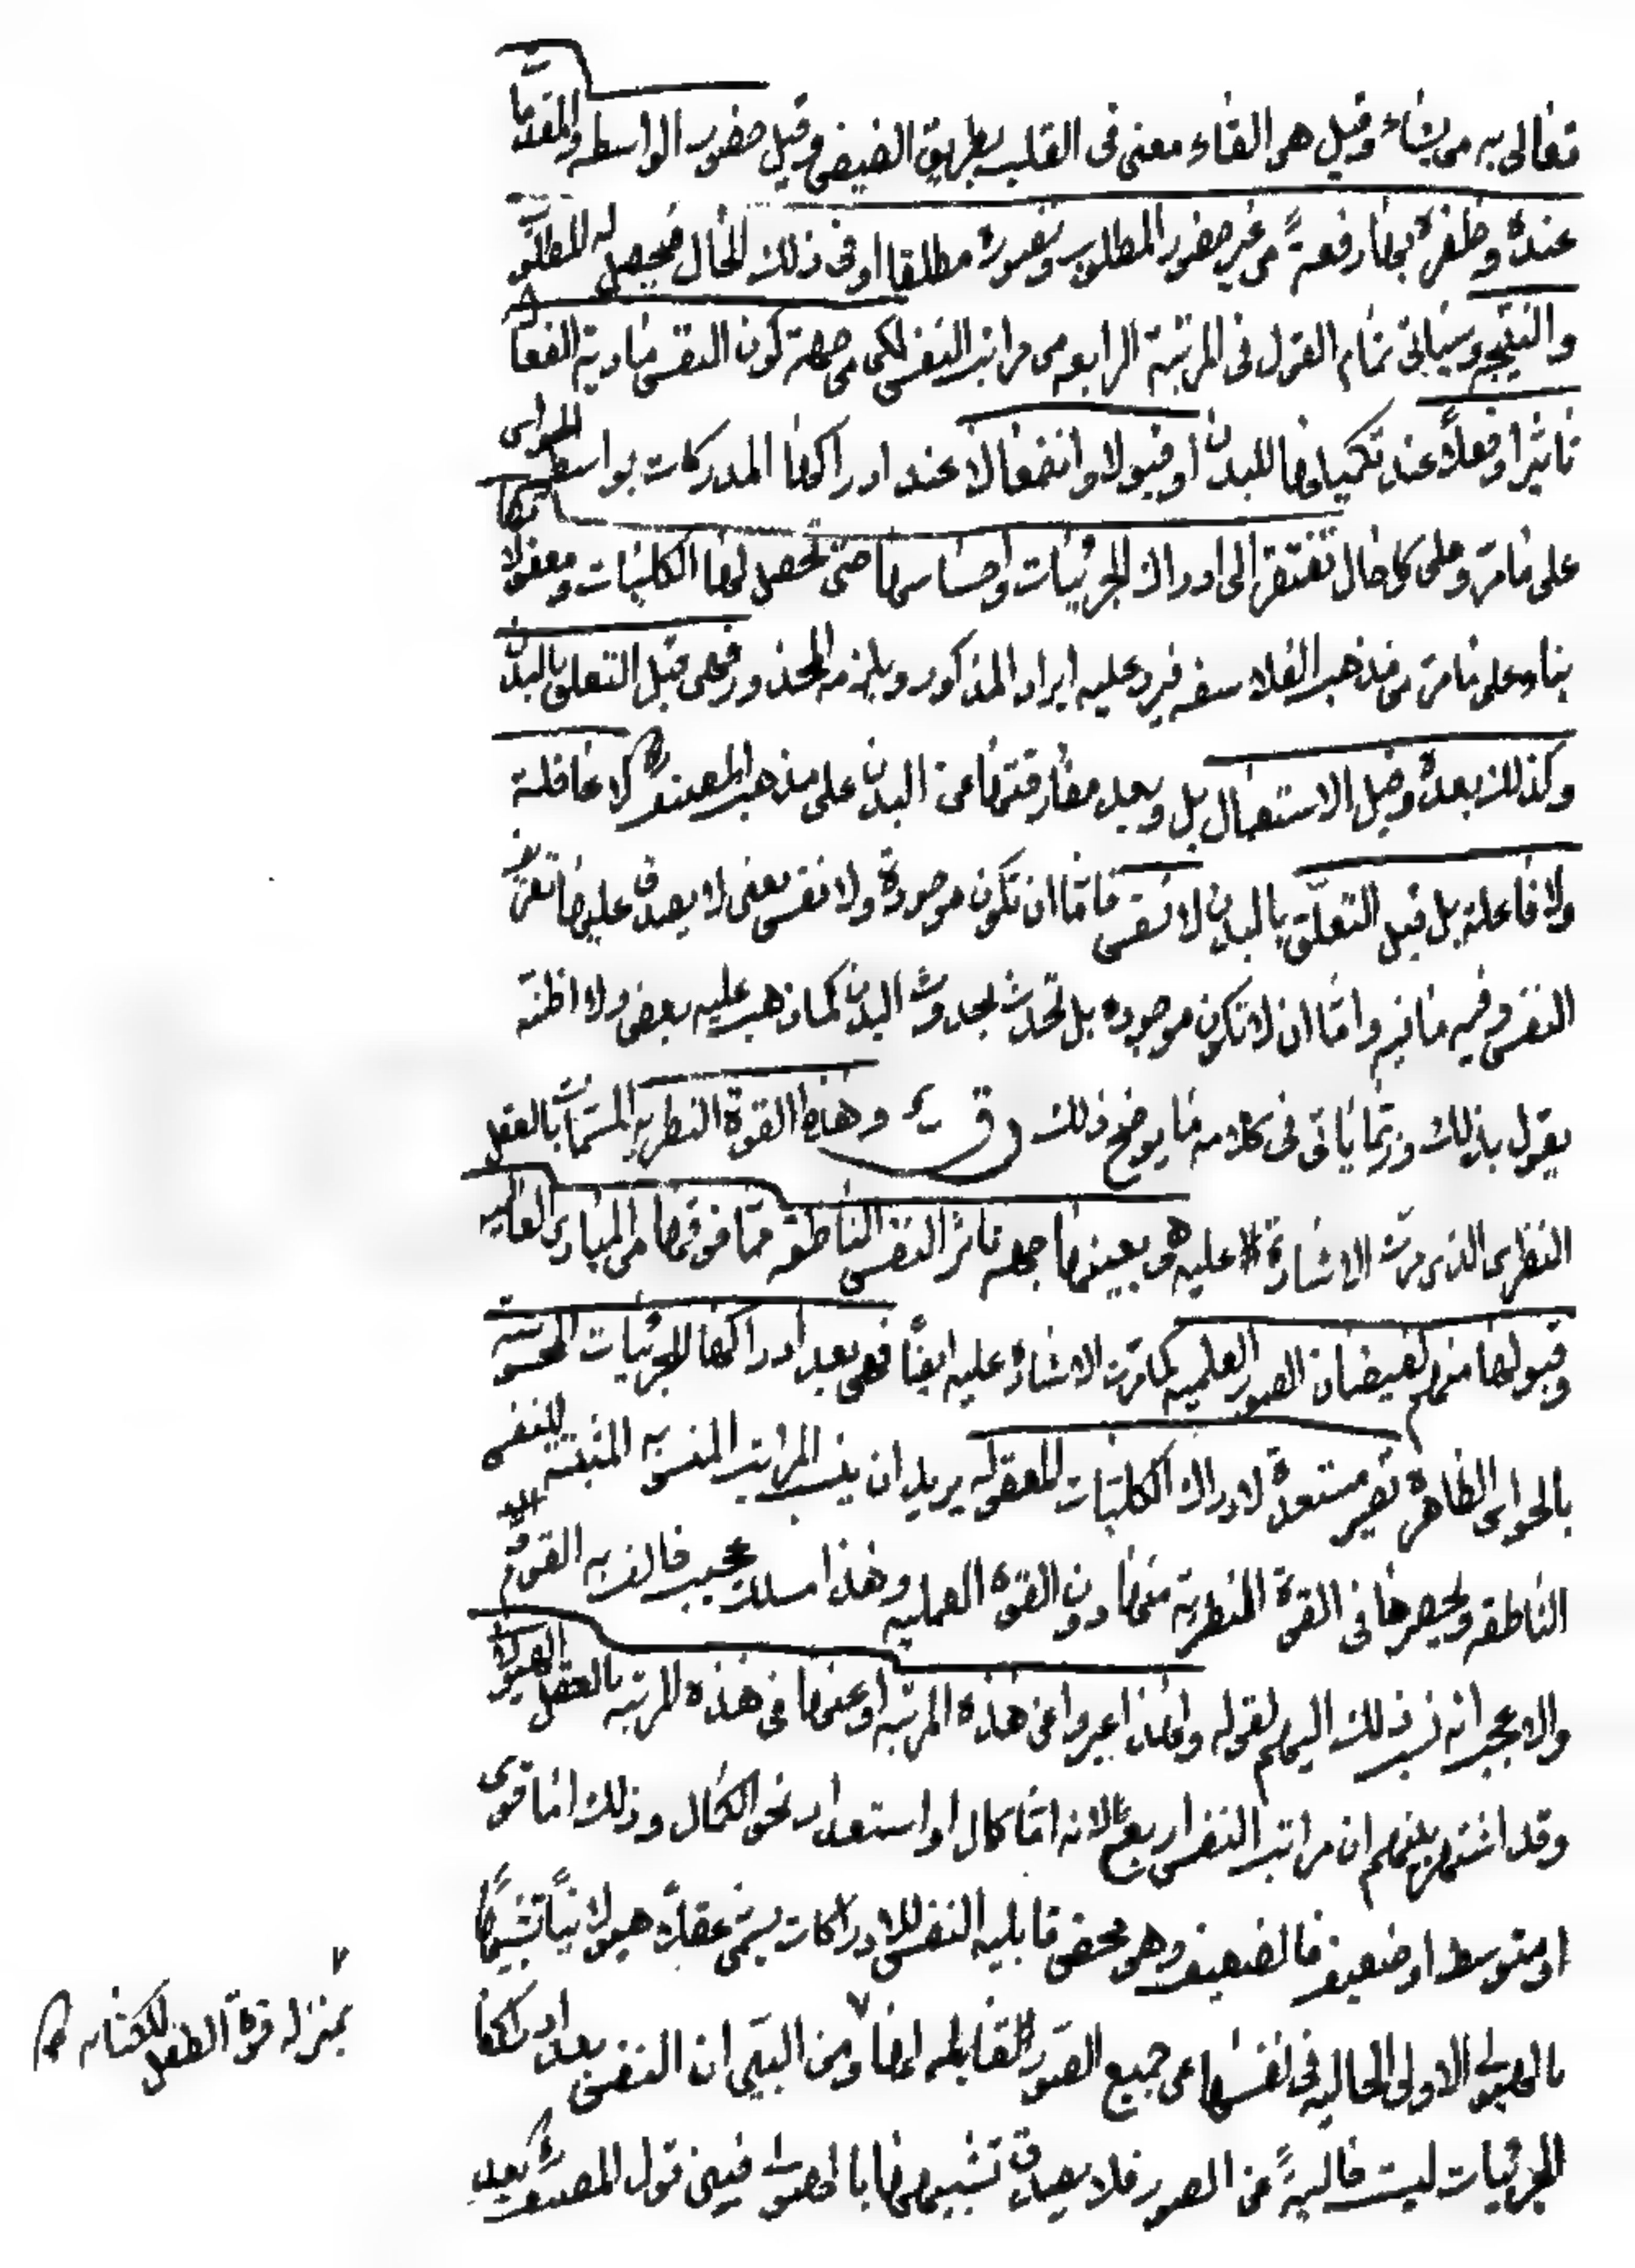 تعالى به من يشاء وقيل هو القاء معنى فى القلب بطريق الفيض وقيل حضور الواسطه والمقدمات
عنده وظفره بها دفعةً من غير حضور المطلوب وتصوره مطلقا او فى ذلك الحال فيحصل له المطلوب
والنتيجه وسياتى تمام القول فى المرتبة الرابعه من مراتب النفس لكن من جهة كون النفس
تاثيرا وفعلاً عند تكميلها للبدن او قبولا وانفعالا عند ادراكها المدركات بواسطه الحواس
على ما مرّ وعلى كل حال تفتقر الى ادراك الجزئيات واحساسها حتى تحصل لها الكليات ومعقولاتها
بناء على ما مرّ من مذهب الفلاسفه فيرد عليه ايراد المذكور ويلزمه المحذور فهى قبل التعلق بالبدن
وكذلك بعده وقبل الاستعمال بل وبعد مفارقتها عن البدن على مذهب المصنفؒ لا عاقلة
ولا فاعلة بل قبل التعلّق بالبدن لا نفس فامّا ان تكون موجودة ولا نفس بمعنى لا يصدق عليها تعريف
النفس وفيه ما فيه وامّا ان لا تكون موجوده بل تحدث بحدوث البدن كما ذهب عليه بعض ولا اظنه
يقول بذلك وربّما ياتى فى كلامه ما يوضح ذلك وهذه القوة النظريه المسمّاة بالعقل
النظرى الذى مرّت الاشارة عليه هى بعينها جهه تاثر النفس الناطقه عمّا فوقها من المبادى العاليه
وقبولها منهم لفيضان الصور العلميه كما مرّت الاشارة عليه ايضًا فهى بعد ادراكها للجزئيات المحسوسه
بالحواس الظاهره تصير مستعدة لادراك الكليّات المعقوله يريد ان ينسب المراتب المنسوبه المثبته للنفس
الناطقه ويحصرها فى القوة النظريّة منها دون القوة العمليه وهذا مسلك عجيب خالف به القوم
والاعجب انه نسب ذلك اليهم لقوله ولهذا عبروا عن هذه المرتبه او عنها فى هذه المرتبه بالعقل الهيولانى
وقد اشتهر بينهم ان مراتب النفس اربع لانه امّا كمال او استعداد نحو الكمال وذلك امّا قوى
او متوسط او ضعيف فالضعيف وهو محض قابليه النفس للادراكات يسمّى عقلاً هيولانيّاً تشبيهًا لها
بالهيولى الاولى الخاليه فى نفسها عن جميع الصور القابله لها ومن البيّن ان النفس بعد ادراكها
الجزئيات ليست خاليةً عن الصور فلا يصدق تشبيهها بالهيولى فيبنى قول المصنفؒ بعد
بمنزله قوة الطفل للكتابه